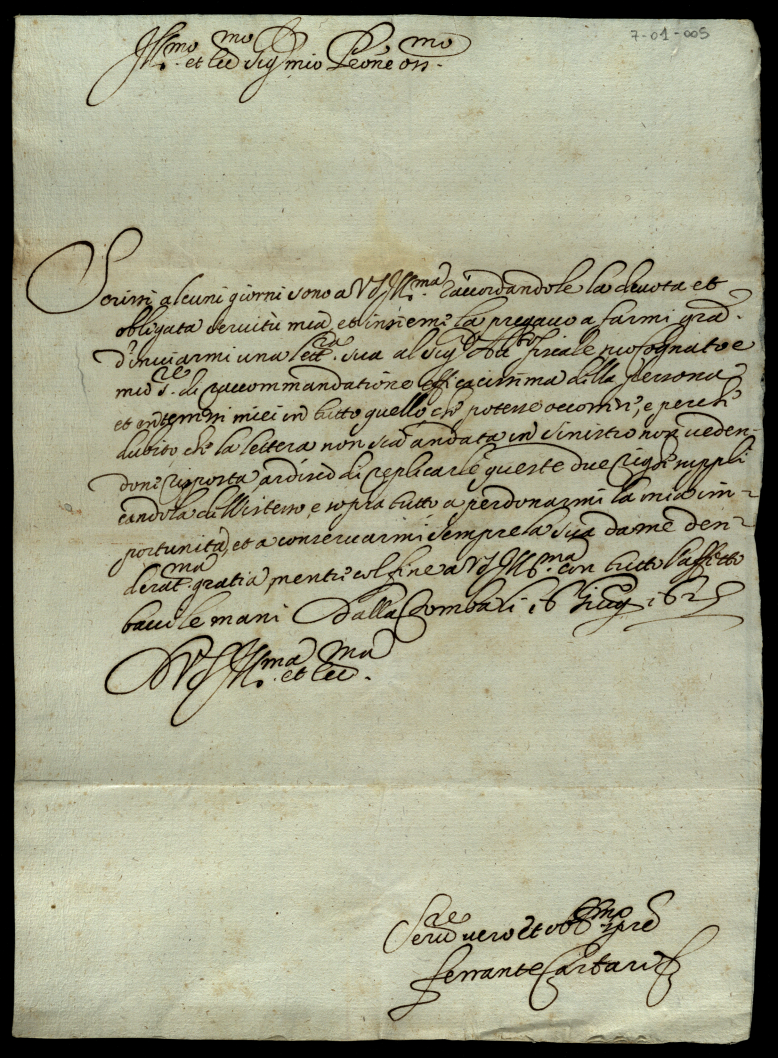 7-01-005
Ill.mo et Ecc.mo Sig mio P.rone oss.mo
Scrissi alcuni giorni sono a VS Ill.ma raccordandole la devota et
obligata servitù mia, et insieme la pregavo a farmi gra.
d'inviarmi una lett.ra sua al sig.r fiscale suo cognato e
mio s.re di raccommandatione efficacissima della persona
et miei in tutto quello che potesse occorrer, e perche
dubito che la lettera non sia andata in sinistro non veden-
done risposta ardisco di replicarle queste due righe suppli
candola dell'istesso, e sopra tutto a perdonarmi la mia im-
portunità, et a conservarmi sempre la sua da me desi-
derat.ma gratia, mentre col fine a VS Ill.ma con tutto l'affetto
bacio le mani Dalla 16 Giug.
D VS Ill.ma et Ecc.ma
Ser.re vero et obb.mo sempre
Ferrante Cartari